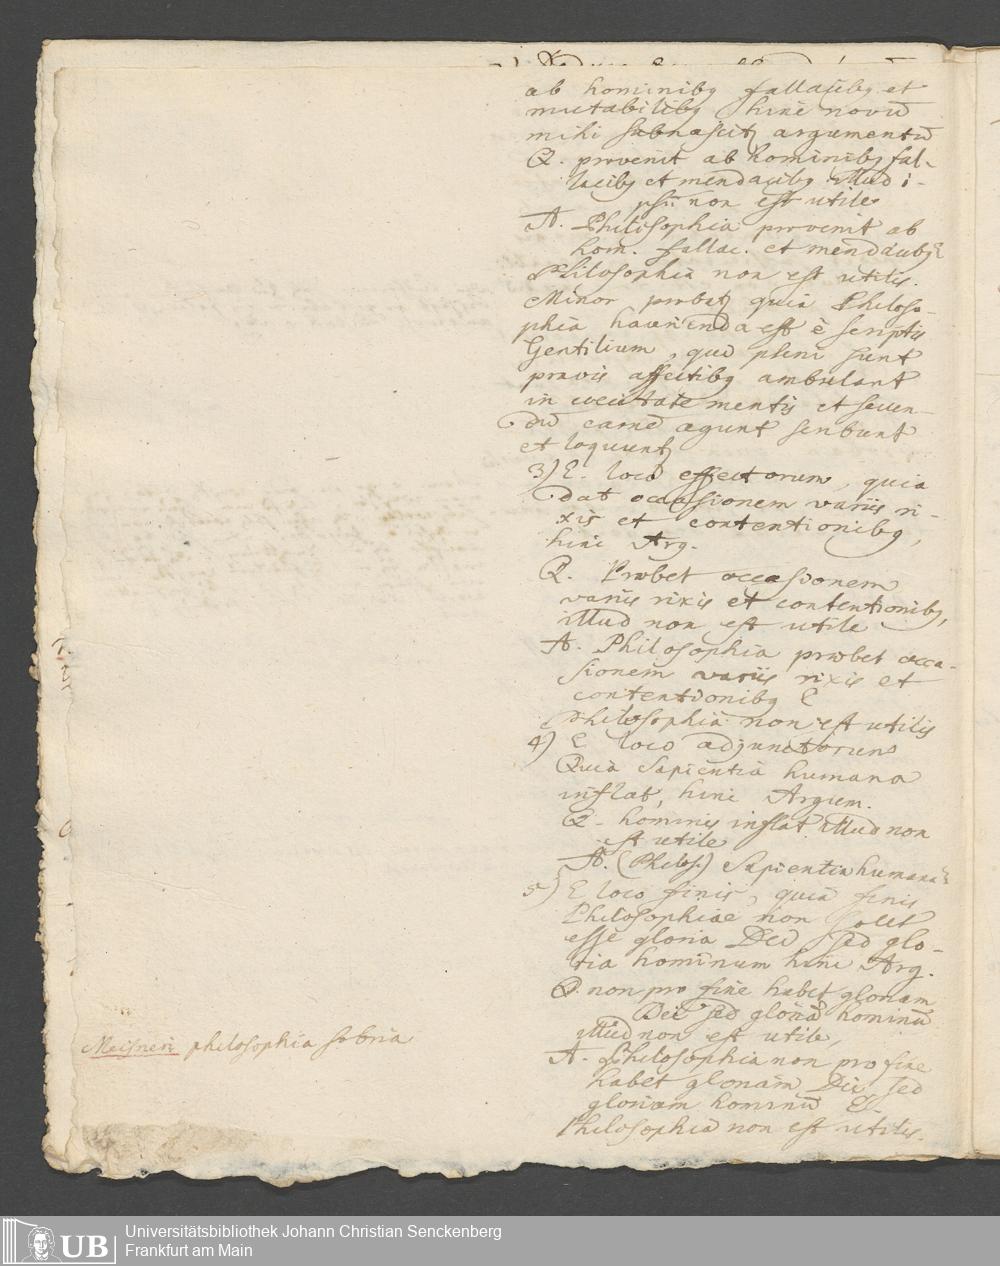 ab hominibꝫ fallacibꝫ et
mutabilibꝫ hinc novū
mihi subnascitꝫ argumentū
Q. provenit ab hominibꝫ fal-
lacibꝫ et mendacibꝫ illud i-
psū non est utile
A. Philosophia provenit ab
hom. fallac. et mendacibꝫ E
Philosophia non est utilis.
Minor probatꝫ quia Philoso-
phia haurienda est è scriptis
Gentilium, qui pleni sunt
pravis affectibꝫ ambulant
in coecitate mentis et secun-
dū carnē agunt scribunt
et loquuntꝫ
3) E. loco effectorum, quia
dat occasionem variis ri-
xis et contentionibꝫ,
hinc Arg.
Q. Præbet occasionem
variis rixis et contentionibꝫ,
illud non est utile
A. Philosophia præbet occa-
sionem variis rixis et
contentionibꝫ E
Philosophia non est utilis
4) E loco adjunctorum
Quia Sapientia humana
inflat, hinc Argum.
Q. hominis inflat illud non
est utile
A. (Philos.) Sapientia humana
5) E loco finis, quia finis
Philosophiae non solet
esse gloria Dei sed glo-
ria hominum hinc Arg.
Q. non pro fine habet gloriam
Dei sed gloriā hominū
illud non est utile,
A. Philosophia non pro fine
habet gloriam Dei, sed
gloriam hominū E.
Philosophia non est utilis.
Meisneri philosophia sobria
UB
Universitätsbibliothek Johann Christian Senckenberg
Frankfurt am Main